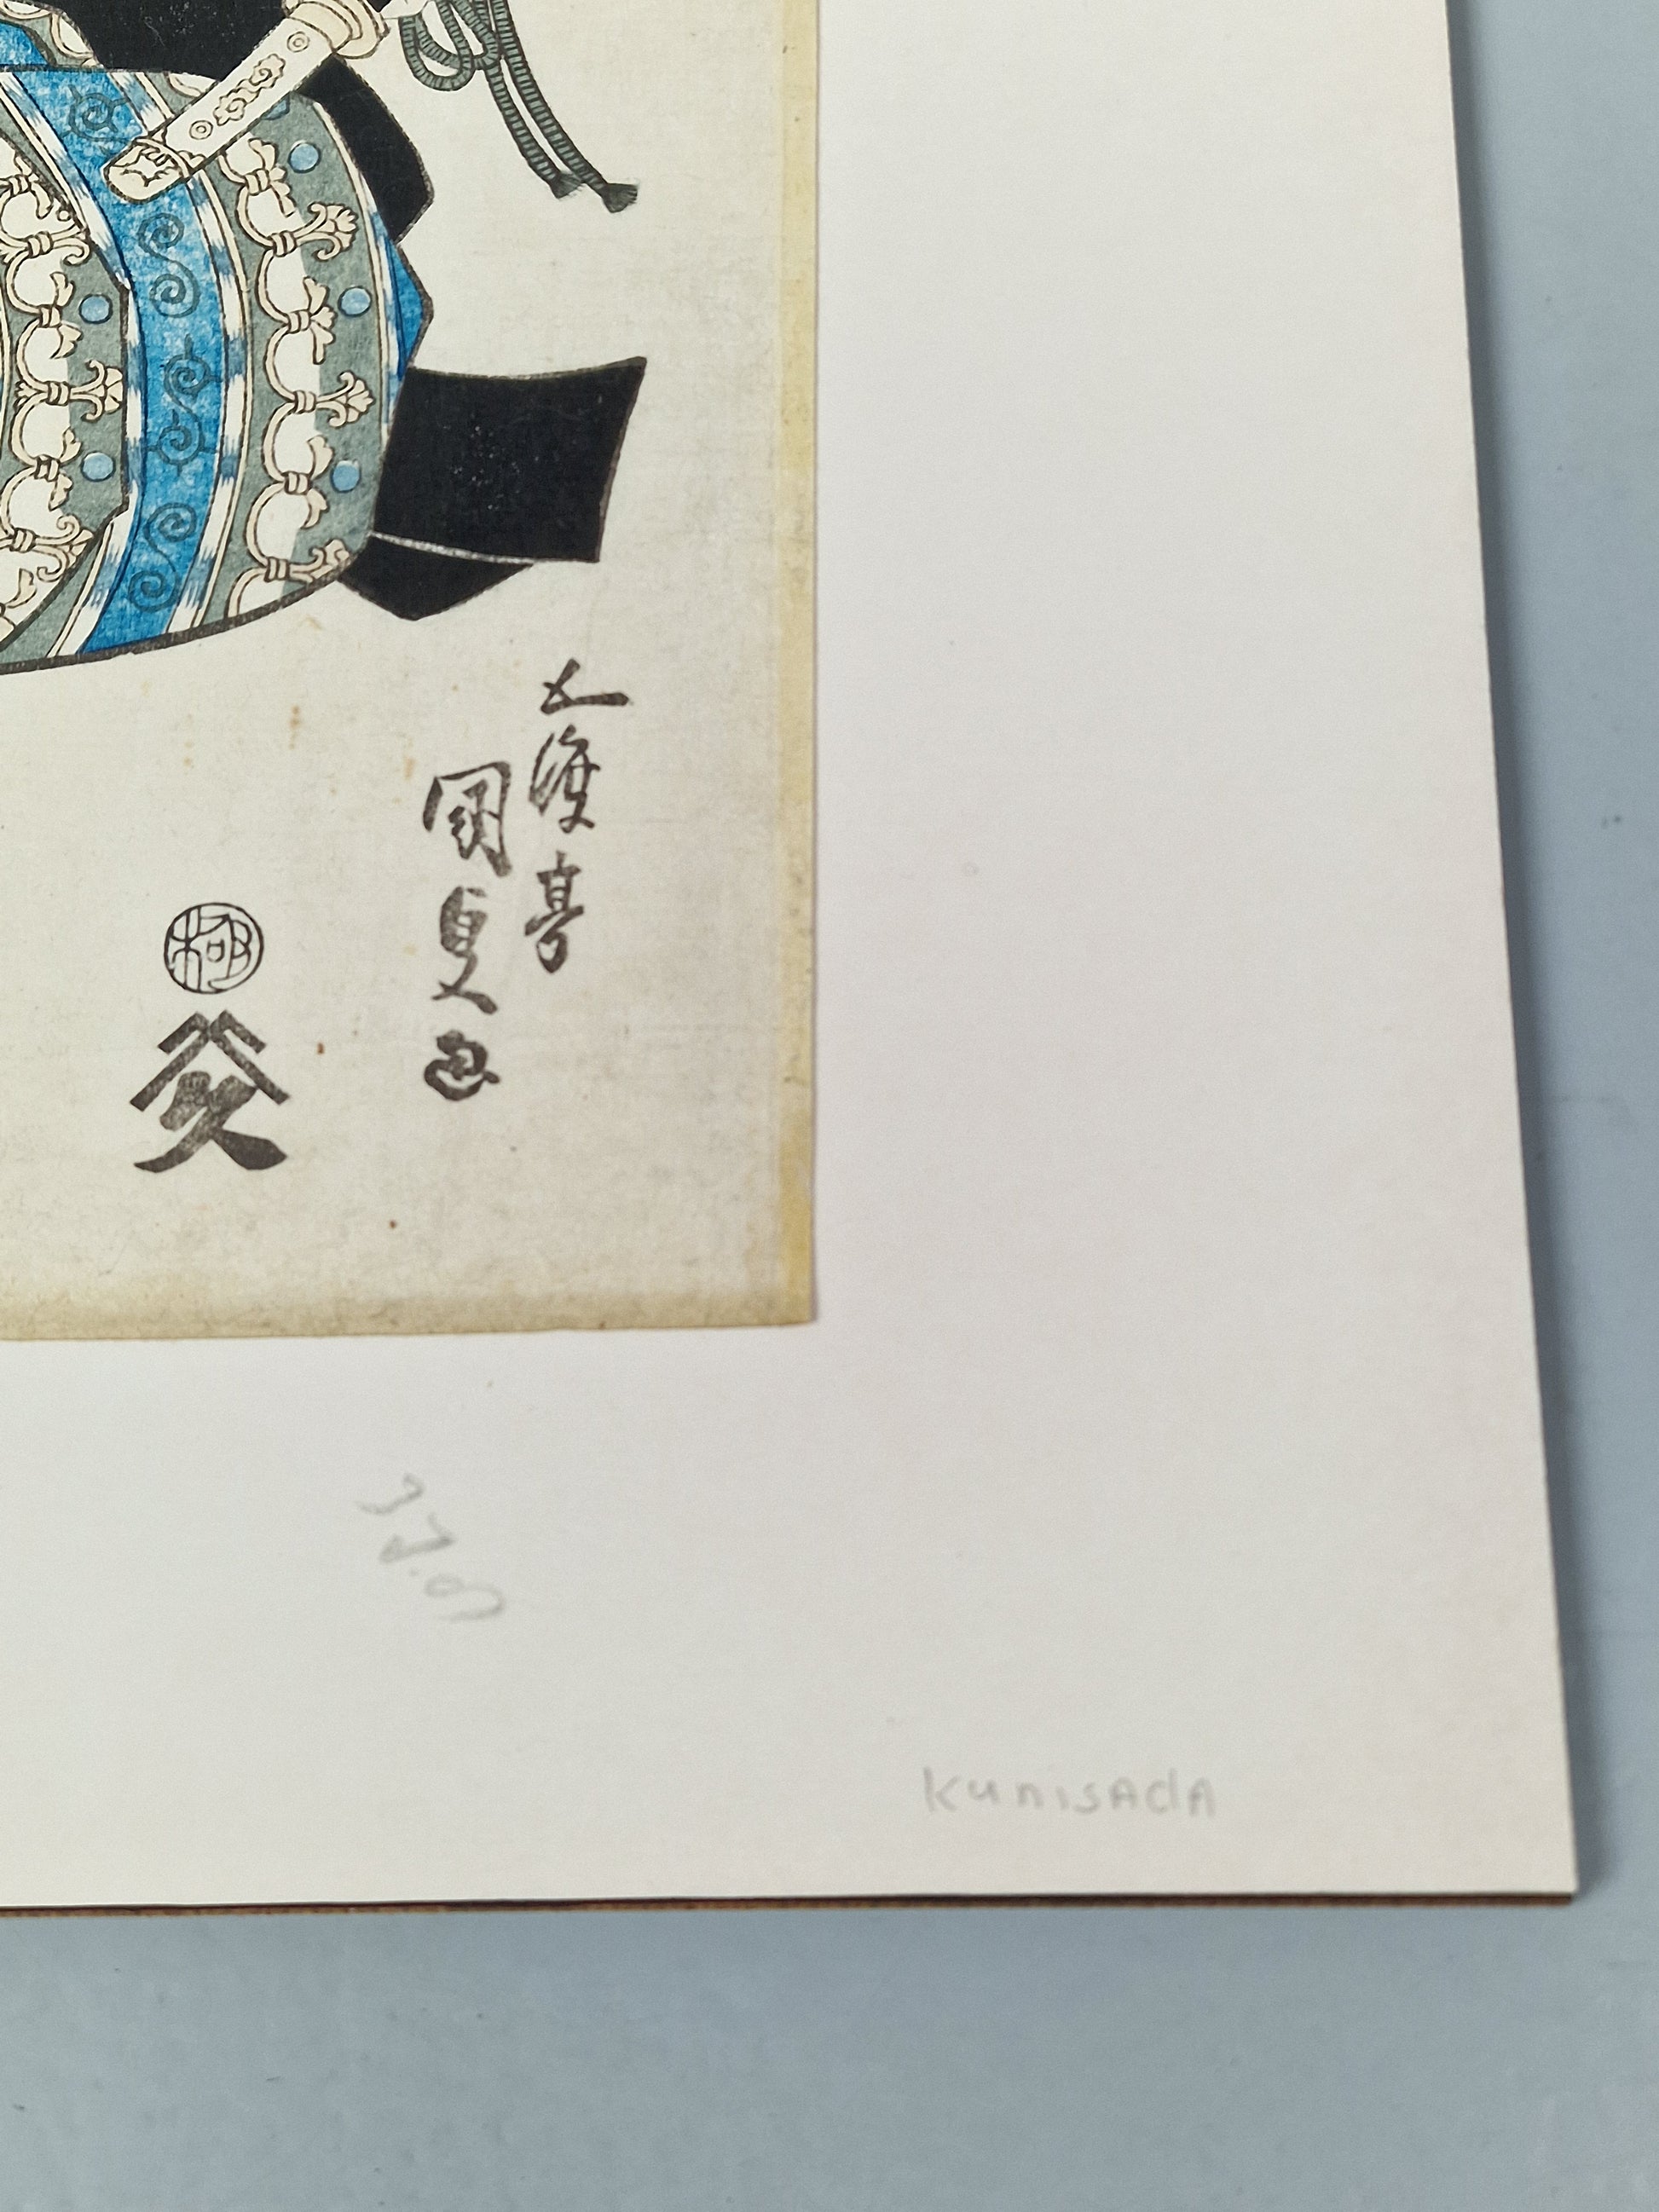 五渡亭
國貞画
極
久
KunisAdA